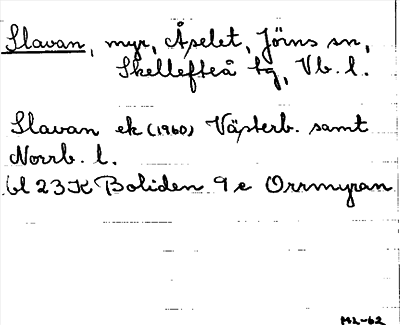 Slavan, myr, Åselet, Jörns sn,
Skellefteå tg, Vb. l.
Slavan ek (1960) Västerb. samt
Norrb. l.
bl 23K Boliden 9 e Orrmyran
ML-62